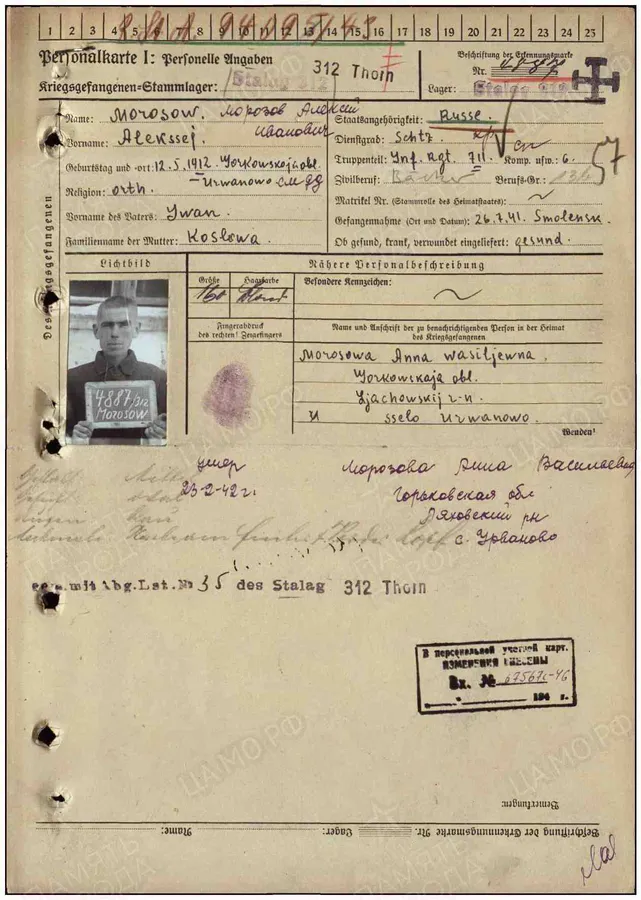 1 2 3 4 5 6 7 8 9 10 11 12 13 14 15 16 17 18 19 20 21 22 23 24 25
Personalkarte I: Personelle Angaben
Kriegsgefangenen=Stammlager: Stalag 312 312 Thorn
Beschriftung der Erkennungsmarke
Nr. 4887
Lager: Stalag 312
Des Kriegsgefangenen
Name: Morosow. Морозов Алексей
Иванович
Vorname: Alekssej.
Geburtstag und =ort: 12.5.1912 Gorkowskaja obl.
Urwanowo
Religion: orth.
Vorname des Vaters: Iwan.
Familienname der Mutter: Koslowa.
Staatsangehörigkeit: Russe.
Dienstgrad: Schtz.
Truppenteil: Inf. Rgt. 711. Komp. usw.: 6.
Zivilberuf: Bäcker Berufs=Gr.:
Matrikel Nr. (Stammrolle des Heimatstaates):
Gefangennahme (Ort und Datum): 26.7.41. Smolensk.
Ob gesund, krank, verwundet eingeliefert: gesund.
57
Lichtbild
4887/312
Morosow
Nähere Personalbeschreibung
Größe Haarfarbe
160 blond
Besondere Kennzeichen:
Fingerabdruck
des rechten! Zeigefingers
Name und Anschrift der zu benachrichtigenden Person in der Heimat
des Kriegsgefangenen
Morosowa Anna Wasiljewna.
Gorkowskaja obl.
Ljachowskij r-n.
sselo Urwanowo.
Wenden!
умер
23-2-42 г.
Морозова Анна Васильевна
Горьковская обл
Ляховский рн
с. Урваново
mit Abg. Lst. № 35 des Stalag 312 Thorn
В персональной учетной карт.
ИЗМЕНЕНИЯ ВНЕСЕНЫ
Вх. № 67567с-46
194 г.
Bemerkungen:
Name: Lager: Beschriftung der Erkennungsmarke Nr.
ЦАМО РФ
ПАМЯТЬ